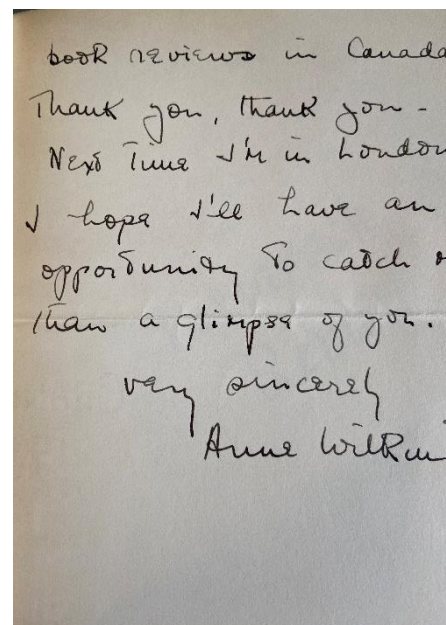 book reviews in Canada
Thank you, thank you -
Next Time I'm in London
I hope I'll have an
opportunity To catch
than a glimpse of you.
very sincerely
Anne